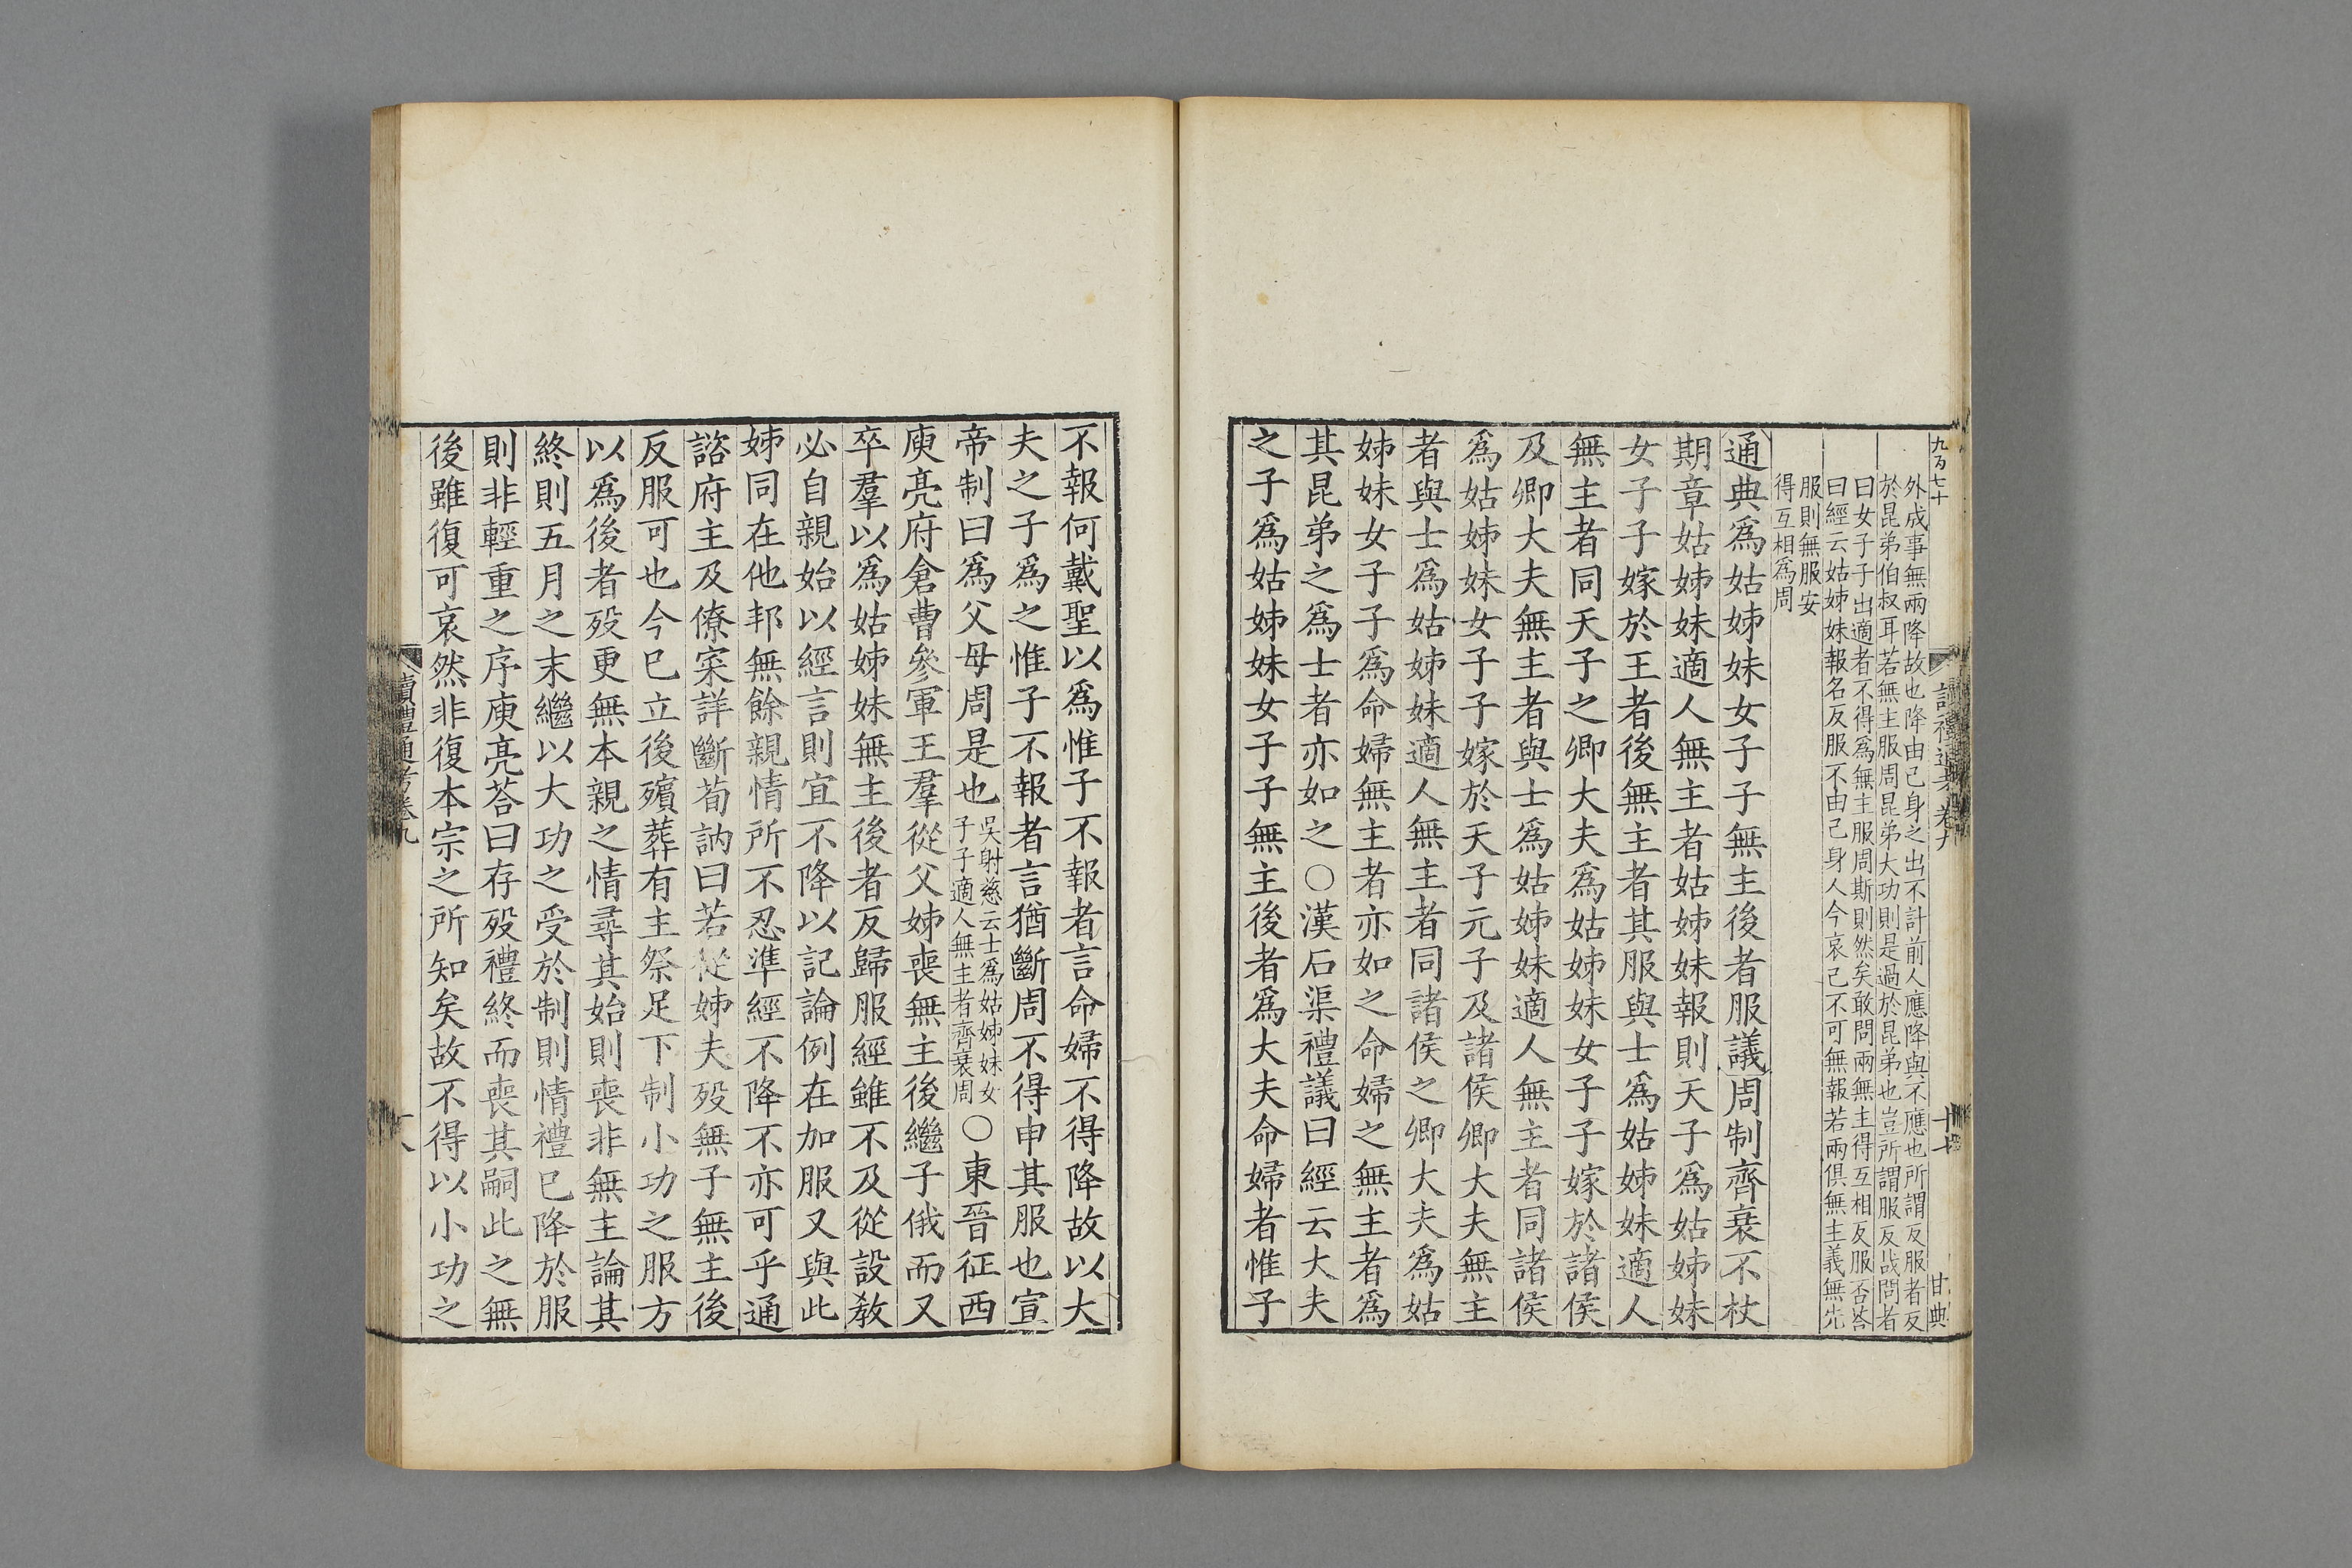 九百七十
讀禮通考卷九
十七
甘典
外成事無兩降故也降由己身之出不計前人應降與不應也所謂反服者反
於昆弟伯叔耳若無主服周昆弟大功則是過於昆弟也豈所謂服反哉問者
曰女子子出適者不得爲無主服周斯則然矣敢問兩無主得互相反服否荅
曰經云姑姊妹報名反服不由己身人今哀己不可無報若兩俱無主義無先
服則無服安
得互相爲周
通典爲姑姊妹女子子無主後者服議周制齊衰不杖
期章姑姊妹適人無主者姑姊妹報則天子爲姑姊妹
女子子嫁於王者後無主者其服與士爲姑姊妹適人
無主者同天子之卿大夫爲姑姊妹女子子嫁於諸侯
及卿大夫無主者與士爲姑姊妹適人無主者同諸侯
爲姑姊妹女子子嫁於天子元子及諸侯卿大夫無主
者與士爲姑姊妹適人無主者同諸侯之卿大夫爲姑
姊妹女子子爲命婦無主者亦如之命婦之無主者爲
其昆弟之爲士者亦如之〇漢石渠禮議曰經云大夫
之子爲姑姊妹女子子無主後者爲大夫命婦者惟子
不報何戴聖以爲惟子不報者言命婦不得降故以大
夫之子爲之惟子不報者言猶斷周不得申其服也宣
帝制曰爲父母周是也吳射慈云士爲姑姊妹女
子子適人無主者齊衰周〇東晉征西
庾亮府倉曹參軍王羣從父姊喪無主後繼子俄而又
卒羣以爲姑姊妹無主後者反歸服經雖不及從設教
必自親始以經言則宜不降以記論例在加服又與此
姊同在他邦無餘親情所不忍準經不降不亦可乎通
諮府主及僚寀詳斷荀訥曰若從姊夫歿無子無主後
反服可也今已立後殯葬有主祭足下制小功之服方
以爲後者歿更無本親之情尋其始則喪非無主論其
終則五月之末繼以大功之受於制則情禮已降於服
則非輕重之序庾亮荅曰存歿禮終而喪其嗣此之無
後雖復可哀然非復本宗之所知矣故不得以小功之
讀禮通考卷九
十八